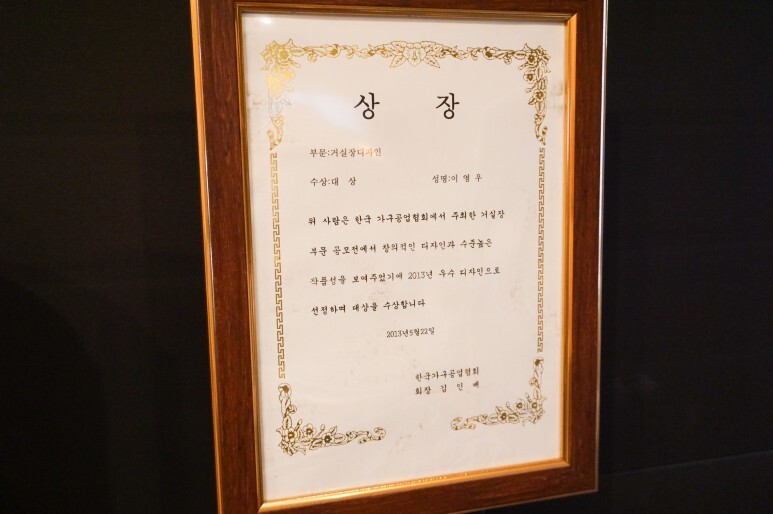 상 장
부문:거실장디자인
수상:대 상 성명:이 영 우
위 사람은 한국 가구공업협회에서 주최한 거실장
부문 공모전에서 창의적인 디자인과 수준높은
작품성을 보여주었기에 2013년 우수 디자인으로
선정하며 대상을 수상합니다
2013년5월22일
한국가구공업협회
회장 김 인 배